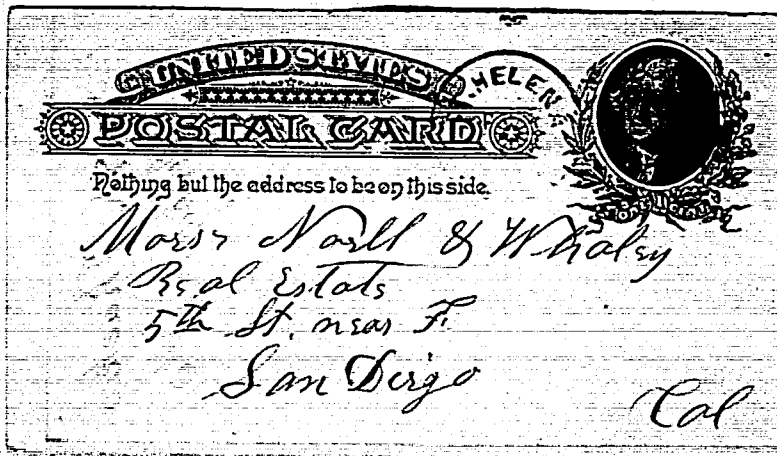 UNITED STATES
HELENA
POSTAL CARD
Nothing but the address to be on this side.
Morse Noell & Whaley
Real Estate
5th St. near F.
San Diego
Cal